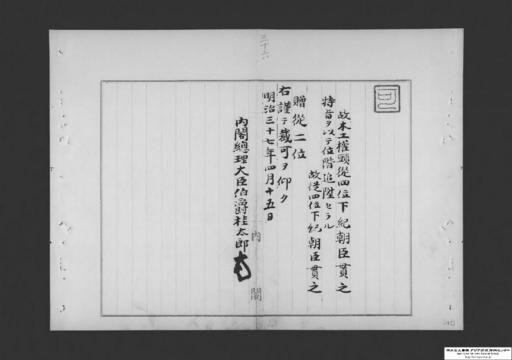 三十六
故木工權頭從四位下紀朝臣貫之
特旨ヲ以テ位階追陞セラル
故從四位下紀朝臣貫之
贈從二位
右謹テ裁可ヲ仰ク
明治三十七年四月十五日
內閣總理大臣伯爵桂太郎
內閣